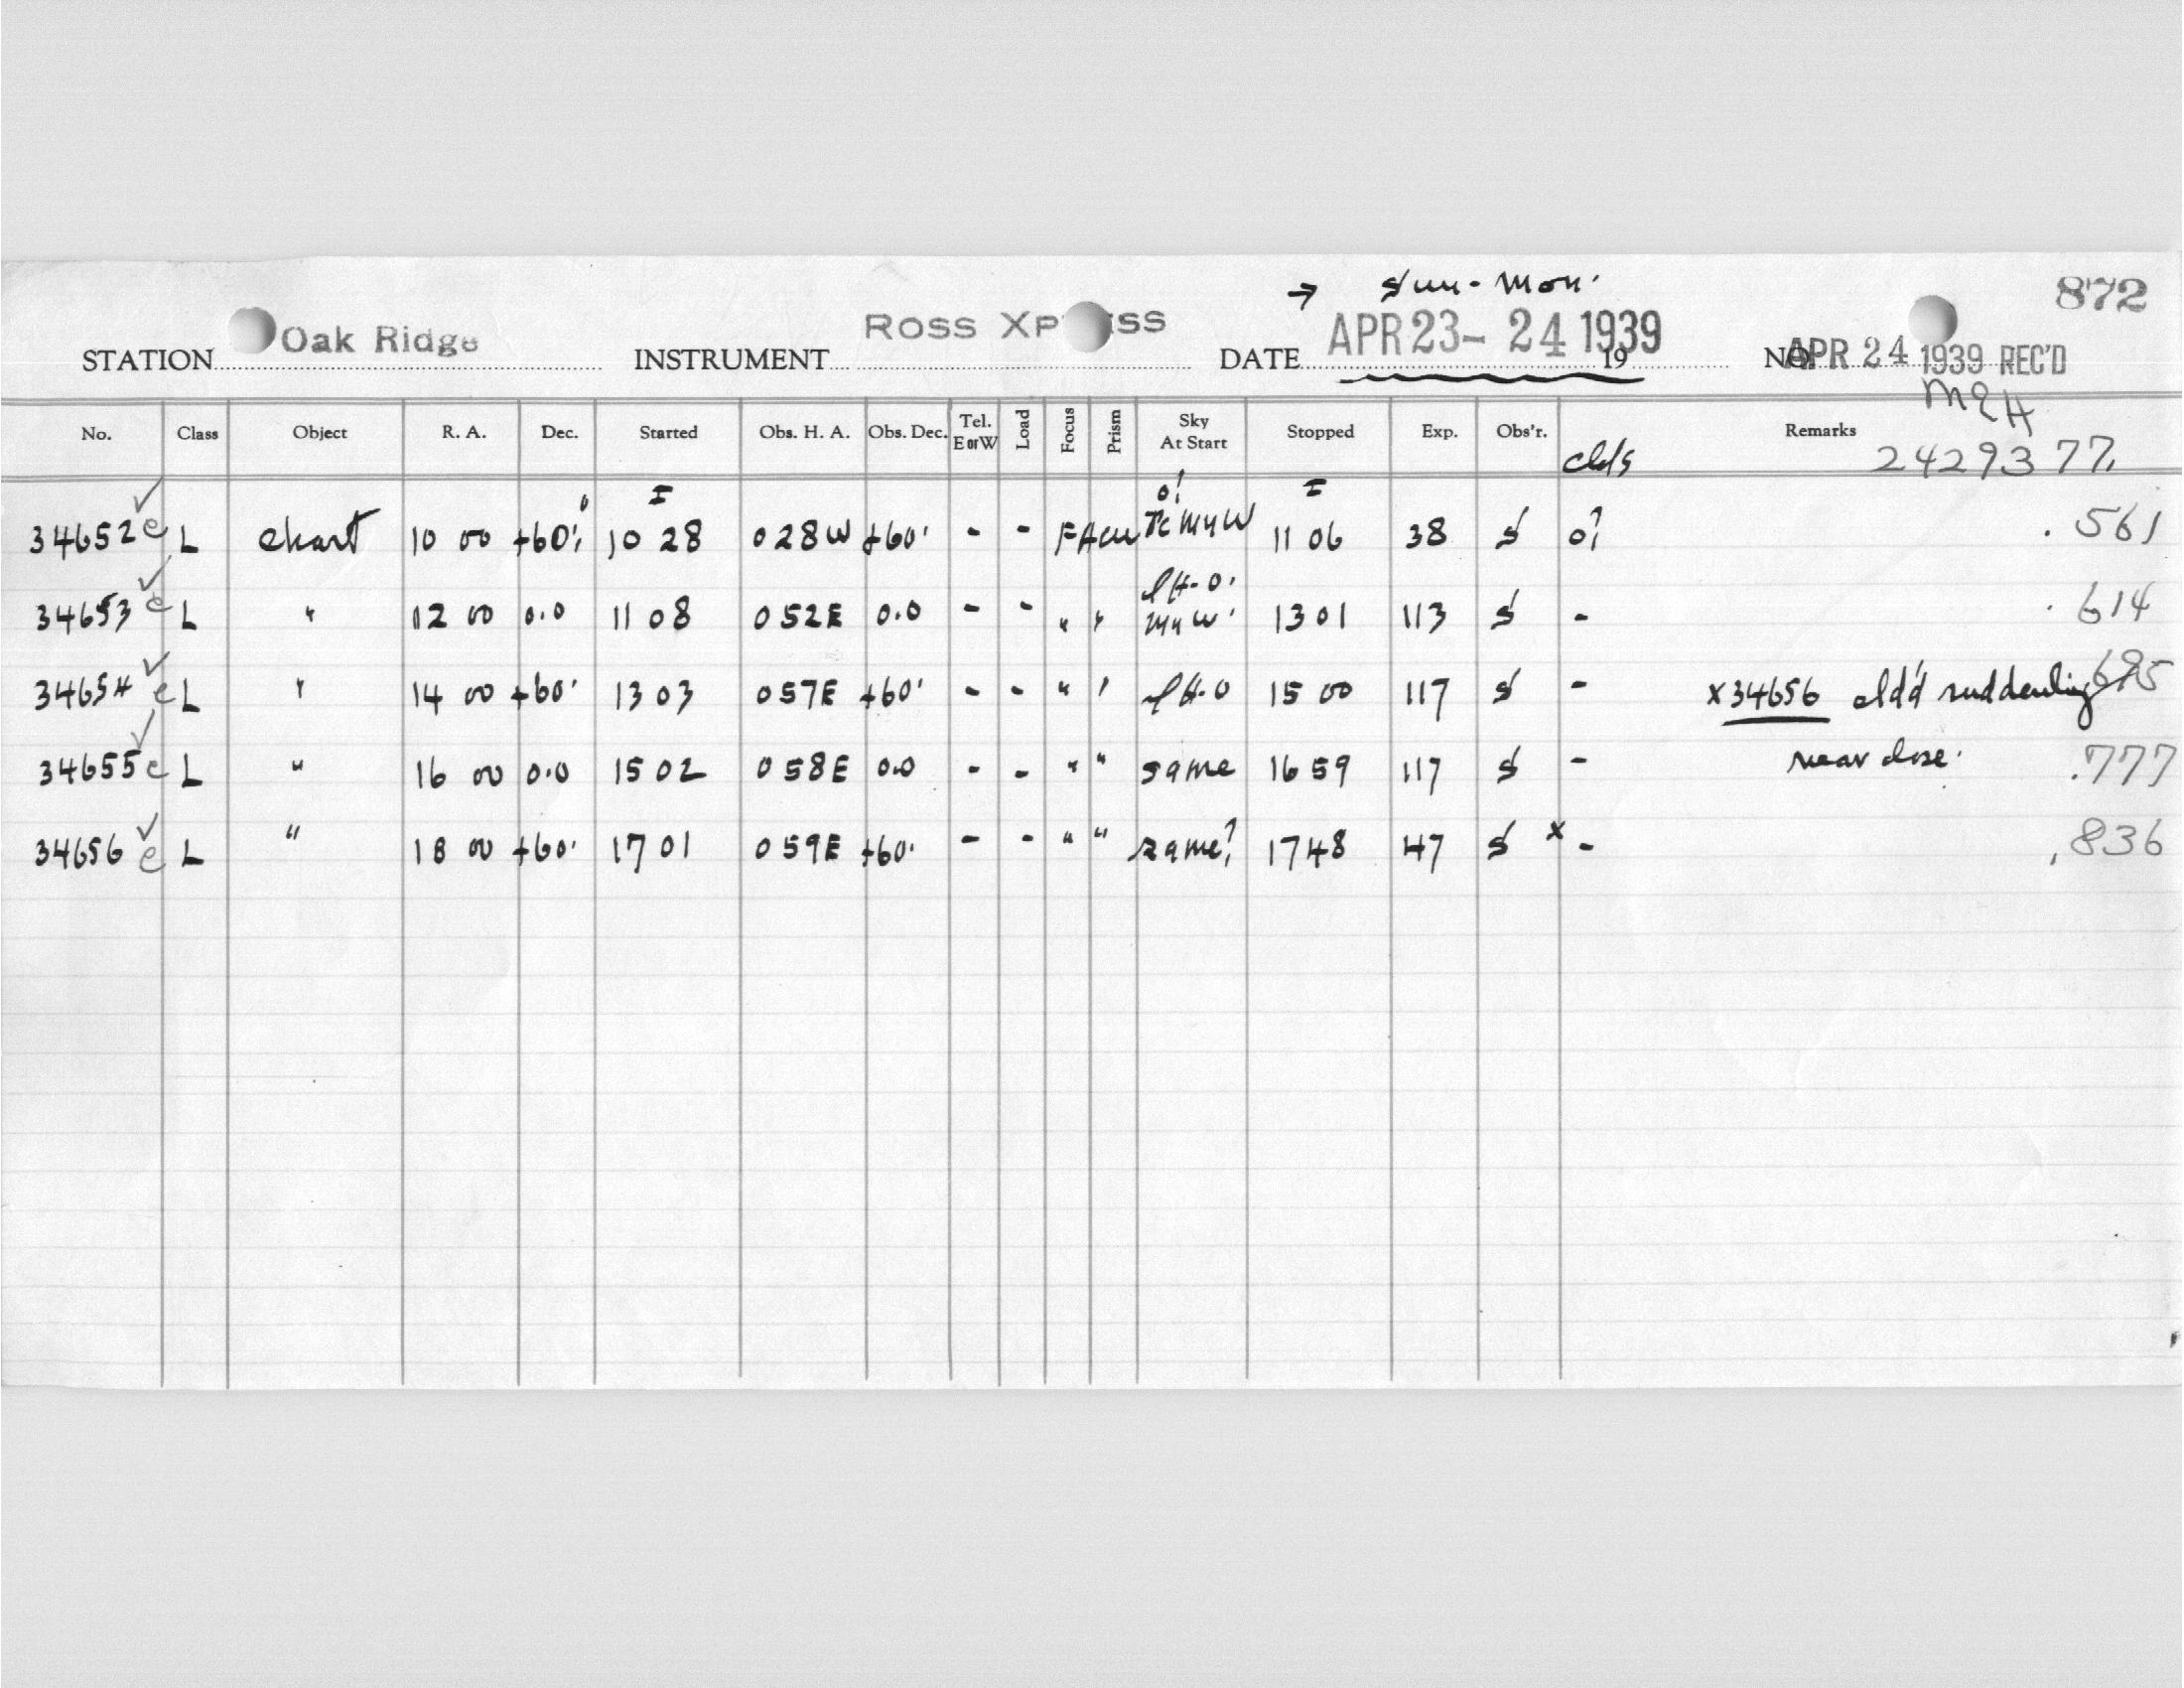 → Sun - Mon. 872
STATION Oak Ridge INSTRUMENT ROSS XP SS DATE APR 23 - 24 1939 19 NO. APR 24 1939 REC'D
MEH
No. Class Object R. A. Dec. Started Obs. H. A. Obs. Dec. Tel. E or W Load Focus Prism Sky At Start Stopped Exp. Obs'r. clds Remarks 2429377.
34652 e ✓ L chart 10 00 +60° 10 28 0 28 W +60° - - F 11 06 38 S 0? .561
34653 e ✓ L " 12 00 0.0 11 08 0 52 E 0.0 - - " " 13 01 113 S - .614
34654 e ✓ L " 14 00 +60° 13 03 0 57 E +60° - - " " 15 00 117 S - x 34656 cld'd suddenly .695
34655 e ✓ L " 16 00 0.0 15 02 0 58 E 0.0 - - " " same 16 59 117 S - near close. .777
34656 e ✓ L " 18 00 +60° 17 01 0 59 E +60° - - " " same? 17 48 47 S x - .836